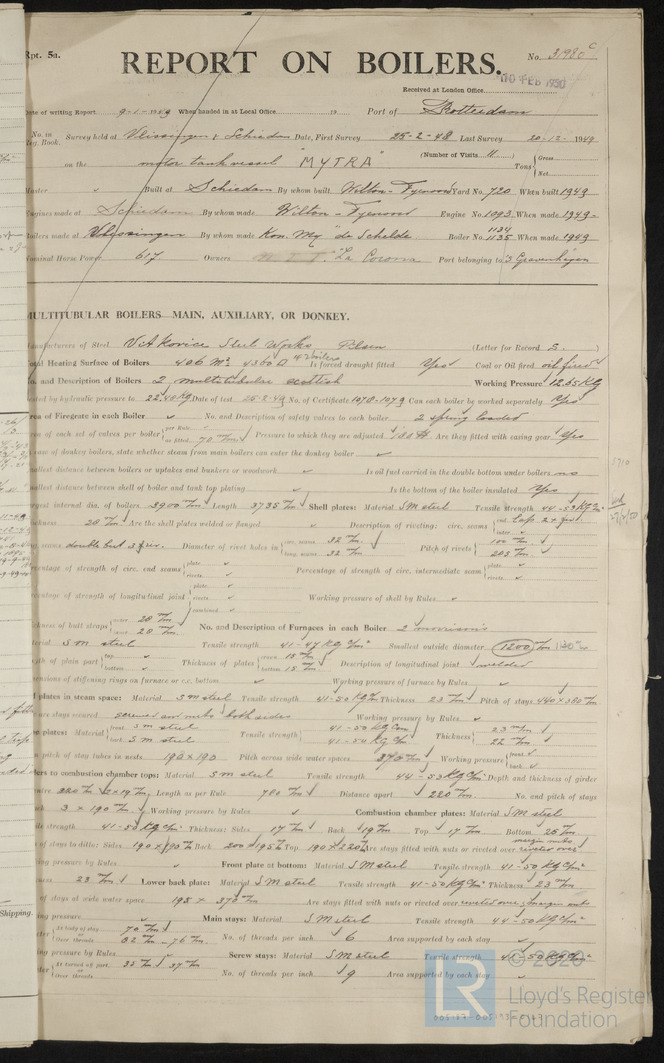 Rpt. 5a.
REPORT ON BOILERS.
No. 31980 c
10 FEB 1950
Received at London Office
Date of writing Report 9-1-1949 When handed in at Local Office 19 Port of Rotterdam
No. in Reg. Book. Survey held at Vlissingen & Schiedam Date, First Survey 25-2-48 Last Survey 20-12-1949
on the motor tank vessel "MYTRA" (Number of Visits 11) Tons Gross Net
Master Built at Schiedam By whom built Wilton-Fyenoord Yard No. 720 When built 1949
Engines made at Schiedam By whom made Wilton-Fyenoord Engine No. 1093 When made 1949
Boilers made at Vlissingen By whom made Kon. My "de Schelde" Boiler No. 1134 1135 When made 1949
Nominal Horse Power 617 Owners "La Corona" Port belonging to 's Gravenhagen
MULTITUBULAR BOILERS—MAIN, AUXILIARY, OR DONKEY.
Manufacturers of Steel (Letter for Record S.)
Total Heating Surface of Boilers 406 m² 4360 Is forced draught fitted Yes Coal or Oil fired oil fired
No. and Description of Boilers 2 multitubular scottish Working Pressure 12.65 KG
Tested by hydraulic pressure to 22.40 KG Date of test No. of Certificate 1070-1079 Can each boiler be worked separately Yes
Area of Firegrate in each Boiler No. and Description of safety valves to each boiler 2 spring loaded
Area of each set of valves per boiler per Rule as fitted Pressure to which they are adjusted Are they fitted with easing gear Yes
In case of donkey boilers, state whether steam from main boilers can enter the donkey boiler
Smallest distance between boilers or uptakes and bunkers or woodwork Is oil fuel carried in the double bottom under boilers no
Smallest distance between shell of boiler and tank top plating Is the bottom of the boiler insulated Yes
Largest internal dia. of boilers 3900 mm Length 3735 mm Shell plates: Material SM steel Tensile strength 44-53 KG/mm²
Thickness 28 mm Are the shell plates welded or flanged Description of riveting: circ. seams end inter.
long. seams double butt 3 Diameter of rivet holes in circ. seams 32 mm long. seams 32 mm Pitch of rivets 100 mm
Percentage of strength of circ. end seams plate rivets Percentage of strength of circ. intermediate seam plate rivets
Percentage of strength of longitudinal joint plate rivets combined Working pressure of shell by Rules
Thickness of butt straps outer 20 mm inner 20 mm No. and Description of Furnaces in each Boiler 2 morrison's
Material SM steel Tensile strength 41-47 KG/mm² Smallest outside diameter 1200 mm
Length of plain part top bottom Thickness of plates crown 15 mm bottom 15 mm Description of longitudinal joint welded
Dimensions of stiffening rings on furnace or c.c. bottom Working pressure of furnace by Rules
End plates in steam space: Material SM steel Tensile strength 41-50 KG/mm² Thickness 23 mm Pitch of stays
How are stays secured screwed and nuts both sides Working pressure by Rules
Tube plates: Material front SM steel back SM steel Tensile strength 41-50 KG/mm² 41-50 KG/mm² Thickness 23 mm 22 mm
Mean pitch of stay tubes in nests 190 x 190 Pitch across wide water spaces 370 mm Working pressure front back
Girders to combustion chamber tops: Material SM steel Tensile strength 44-53 KG/mm² Depth and thickness of girder
at centre Length as per Rule 780 mm Distance apart 220 mm No. and pitch of stays
in each 3 x 190 mm Working pressure by Rules Combustion chamber plates: Material SM steel
Tensile strength 41-50 KG/mm² Thickness: Sides 17 mm Back 19 mm Top 17 mm Bottom 25 mm
Pitch of stays to ditto: Sides 190 x 190 Back 200 x 195 Top 190 x 220 Are stays fitted with nuts or riveted over margin nuts riveted over
Working pressure by Rules Front plate at bottom: Material SM steel Tensile strength 41-50 KG/mm²
Thickness 23 mm Lower back plate: Material SM steel Tensile strength 41-50 KG/mm² Thickness 23 mm
Pitch of stays at wide water space 195 x 370 mm Are stays fitted with nuts or riveted over riveted over, margin nuts
Working pressure Main stays: Material SM steel Tensile strength 44-50 KG/mm²
Diameter At body of stay or Over threads 70 mm 82 mm - 76 mm No. of threads per inch 6 Area supported by each stay
Working pressure by Rules Screw stays: Material SM steel Tensile strength 41-50 KG/mm²
Diameter At turned off part or Over threads 35 mm 37 mm No. of threads per inch 9 Area supported by each stay
Shipping.
LR
© 2020
Lloyd's Register
Foundation